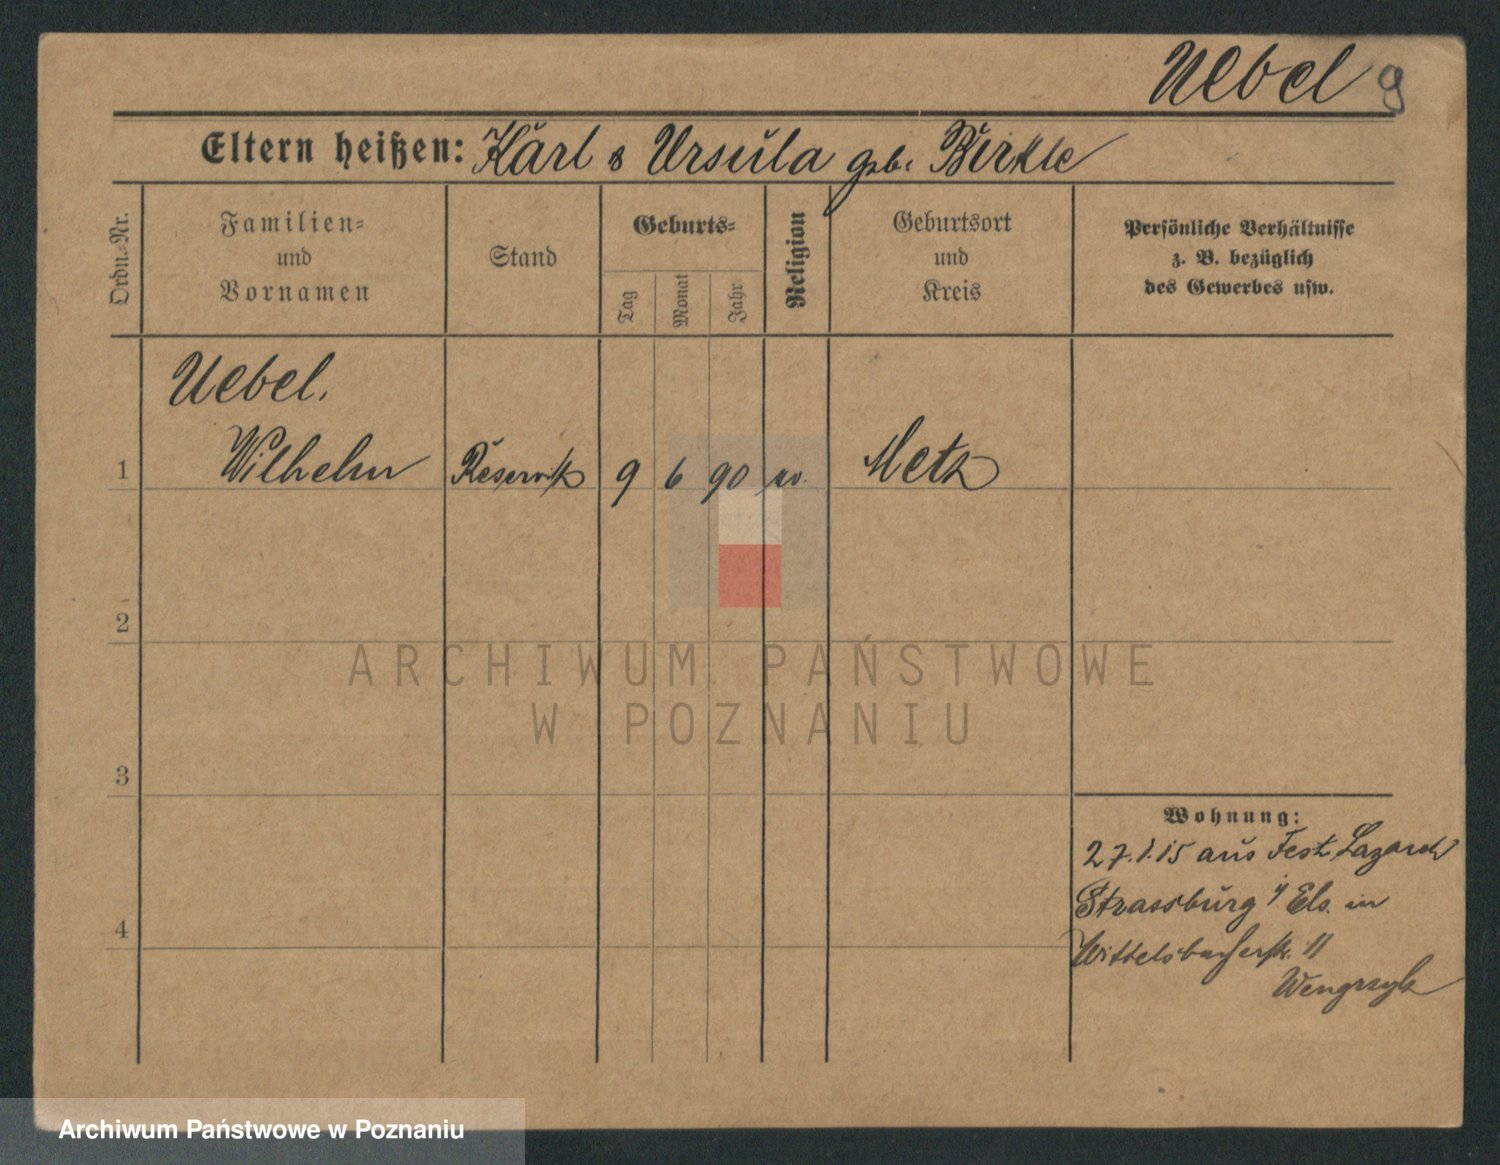 Uebel 9
Eltern heißen: Karl & Ursula geb. Birkle
Ordn.-Nr.
Familien-
und
Vornamen
Stand
Geburts-
Tag
Monat
Jahr
Religion
Geburtsort
und
Kreis
Persönliche Verhältnisse
z. B. bezüglich
des Gewerbes usw.
Uebel,
1 Wilhelm Reservist 9 6 90 Metz
2
3
4
ARCHIWUM PAŃSTWOWE
W POZNANIU
Wohnung:
27.1.15 aus Fest. Lazareth
Strassburg i/ Els. in
Wittelsbacherstr. 11
Wengrzyk
Archiwum Państwowe w Poznaniu